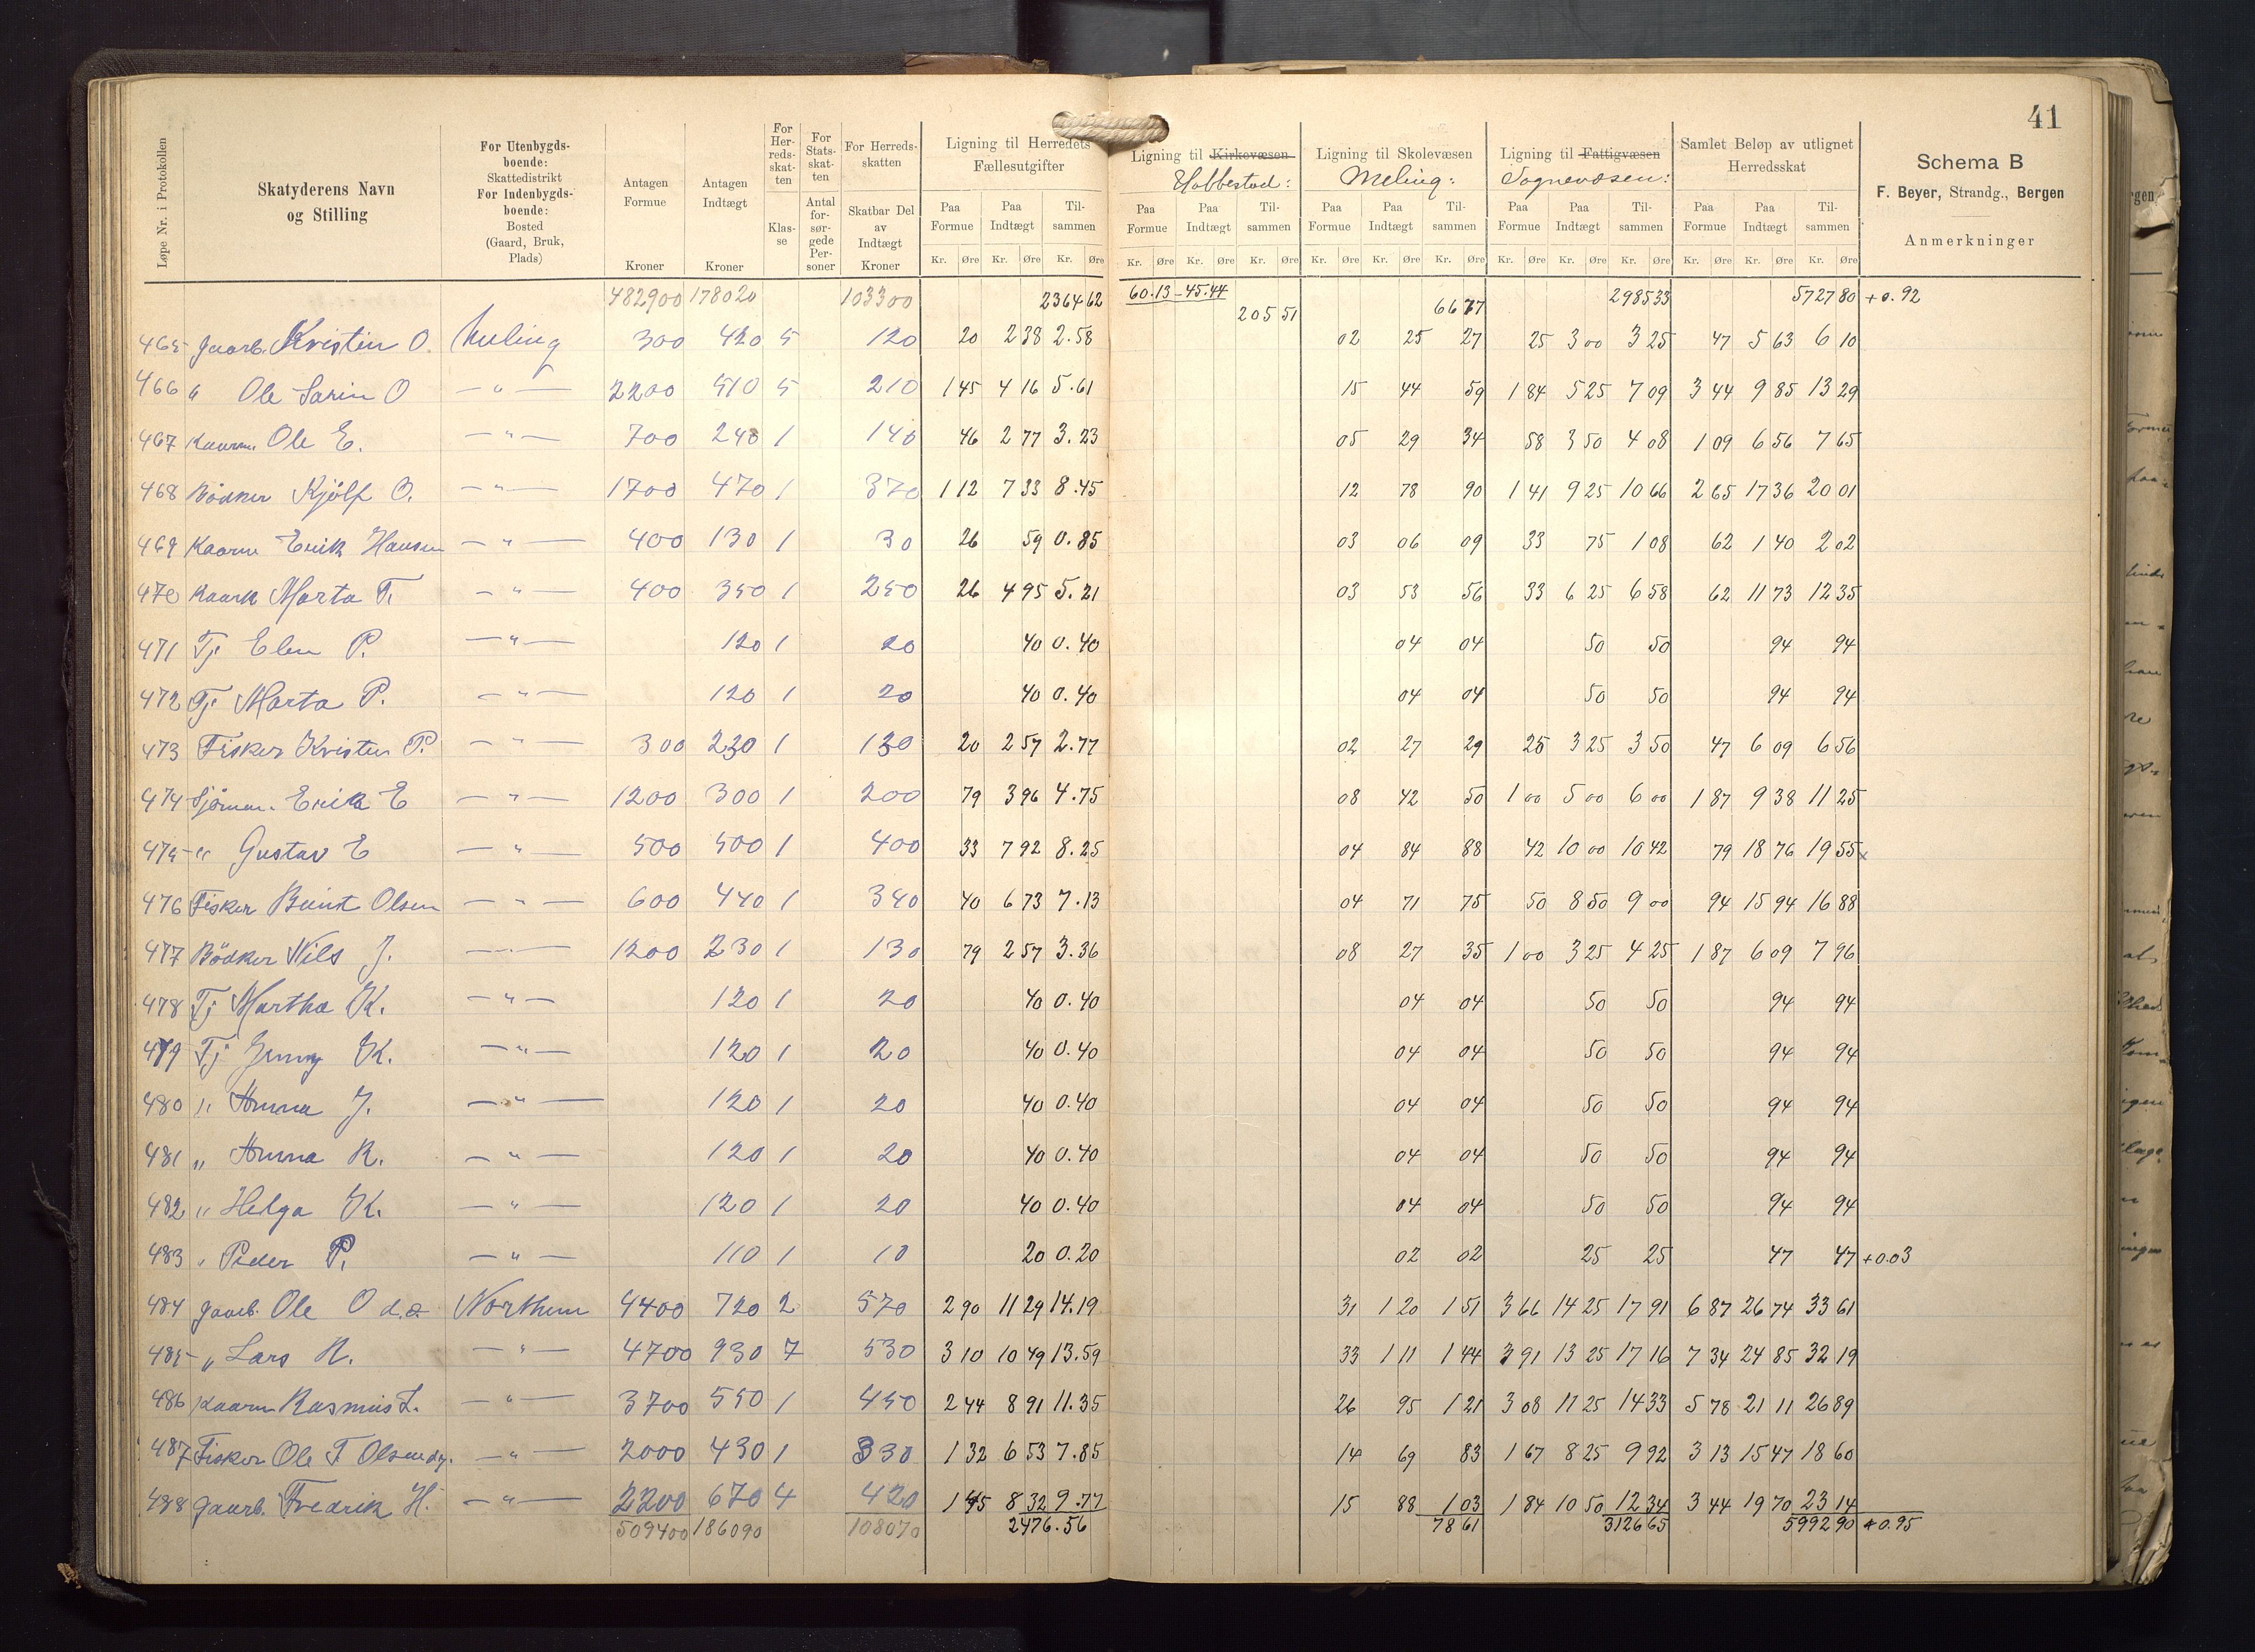 41
Løpe Nr. i Protokollen
Skatyderens Navn og Stilling
For Utenbygds-boende: Skattedistrikt For Indenbygds-boende: Bosted (Gaard, Bruk, Plads)
Antagen Formue Kroner
Antagen Indtægt Kroner
For Herreds-skatten Klasse
For Stats-skatten Antal forsørgede Personer
For Herreds-skatten Skatbar Del av Indtægt Kroner
Ligning til Herredets Fællesutgifter
Ligning til Kirkevæsen Hobbestad:
Ligning til Skolevæsen Meling:
Ligning til Fattigvæsen Sognevæsen:
Samlet Beløp av utlignet Herredsskat
Schema B
F. Beyer, Strandg., Bergen
Anmerkninger
Paa Formue Paa Indtægt Til-sammen Paa Formue Paa Indtægt Til-sammen Paa Formue Paa Indtægt Til-sammen Paa Formue Paa Indtægt Til-sammen Paa Formue Paa Indtægt Til-sammen
Kr. Øre Kr. Øre Kr. Øre Kr. Øre Kr. Øre Kr. Øre Kr. Øre Kr. Øre Kr. Øre Kr. Øre Kr. Øre Kr. Øre Kr. Øre Kr. Øre Kr. Øre
482900 178020 103300 2364 62 60.13-45.44 205 51 66 77 2985 33 5727 80 +0.92
465 Gaarb. Kristin O. Meling 300 420 5 120 20 2 38 2.58 02 25 27 25 3 00 3 25 47 5 63 6 10
466 " Ole Sarin O — " — 2200 510 5 210 1 45 4 16 5.61 15 44 59 1 84 5 25 7 09 3 44 9 85 13 29
467 Kaarm. Ole E. — " — 700 240 1 140 46 2 77 3.23 05 29 34 58 3 50 4 08 1 09 6 56 7 65
468 Bödker Kjölf O. — " — 1700 470 1 370 1 12 7 33 8.45 12 78 90 1 41 9 25 10 66 2 65 17 36 20 01
469 Kaarm Erik Hansen — " — 400 130 1 30 26 59 0.85 03 06 09 33 75 1 08 62 1 40 2 02
470 Kaark Marta T. — " — 400 350 1 250 26 4 95 5.21 03 53 56 33 6 25 6 58 62 11 73 12 35
471 Tj Elen P. — " — 120 1 20 40 0.40 04 04 50 50 94 94
472 Tj Marta P. — " — 120 1 20 40 0.40 04 04 50 50 94 94
473 Fisker Kristen P. — " — 300 230 1 130 20 2 57 2.77 02 27 29 25 3 25 3 50 47 6 09 6 56
474 Sjöman. Erik E — " — 1200 300 1 200 79 3 96 4.75 08 42 50 1 00 5 00 6 00 1 87 9 38 11 25
475 " Gustav E — " — 500 500 1 400 33 7 92 8.25 04 84 88 42 10 00 10 42 79 18 76 19 55 x
476 Fisker Berint Olsen — " — 600 440 1 340 40 6 73 7.13 04 71 75 50 8 50 9 00 94 15 94 16 88
477 Bödker Nils J. — " — 1200 230 1 130 79 2 57 3.36 08 27 35 1 00 3 25 4 25 1 87 6 09 7 96
478 Tj Martha K. — " — 120 1 20 40 0.40 04 04 50 50 94 94
479 Tj Jenny K. — " — 120 1 20 40 0.40 04 04 50 50 94 94
480 " Anna J. — " — 120 1 20 40 0.40 04 04 50 50 94 94
481 " Anna R. — " — 120 1 20 40 0.40 04 04 50 50 94 94
482 " Helga K. — " — 120 1 20 40 0.40 04 04 50 50 94 94
483 " Peder P. — " — 110 1 10 20 0.20 02 02 25 25 47 47 +0.03
484 Gaarb. Ole O d.æ Northun 4400 720 2 570 2 90 11 29 14.19 31 1 20 1 51 3 66 14 25 17 91 6 87 26 74 33 61
485 " Lars R. — " — 4700 930 7 530 3 10 10 49 13.59 33 1 11 1 44 3 91 13 25 17 16 7 34 24 85 32 19
486 Kaarm Rasmus L. — " — 3700 550 1 450 2 44 8 91 11.35 26 95 1 21 3 08 11 25 14 33 5 78 21 11 26 89
487 Fisker Ole T Olsen dy. — " — 2000 430 1 330 1 32 6 53 7.85 14 69 83 1 67 8 25 9 92 3 13 15 47 18 60
488 Gaarb. Fredrik H. — " — 2200 670 4 420 1 45 8 32 9.77 15 88 1 03 1 84 10 50 12 34 3 44 19 70 23 14
509400 186090 108070 2476.56 78 61 3126 65 5992 90 +0.95